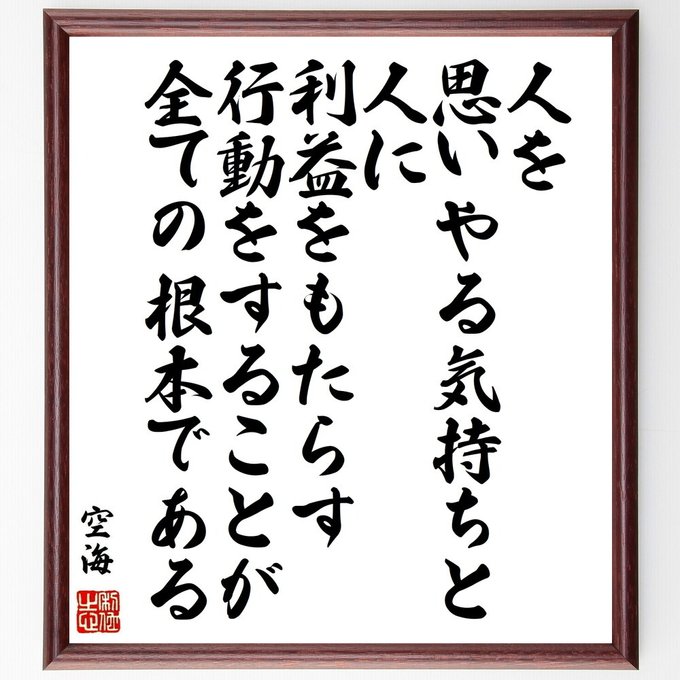 人を
思いやる気持ちと
人に
利益をもたらす
行動をすることが
全ての根本である
空海